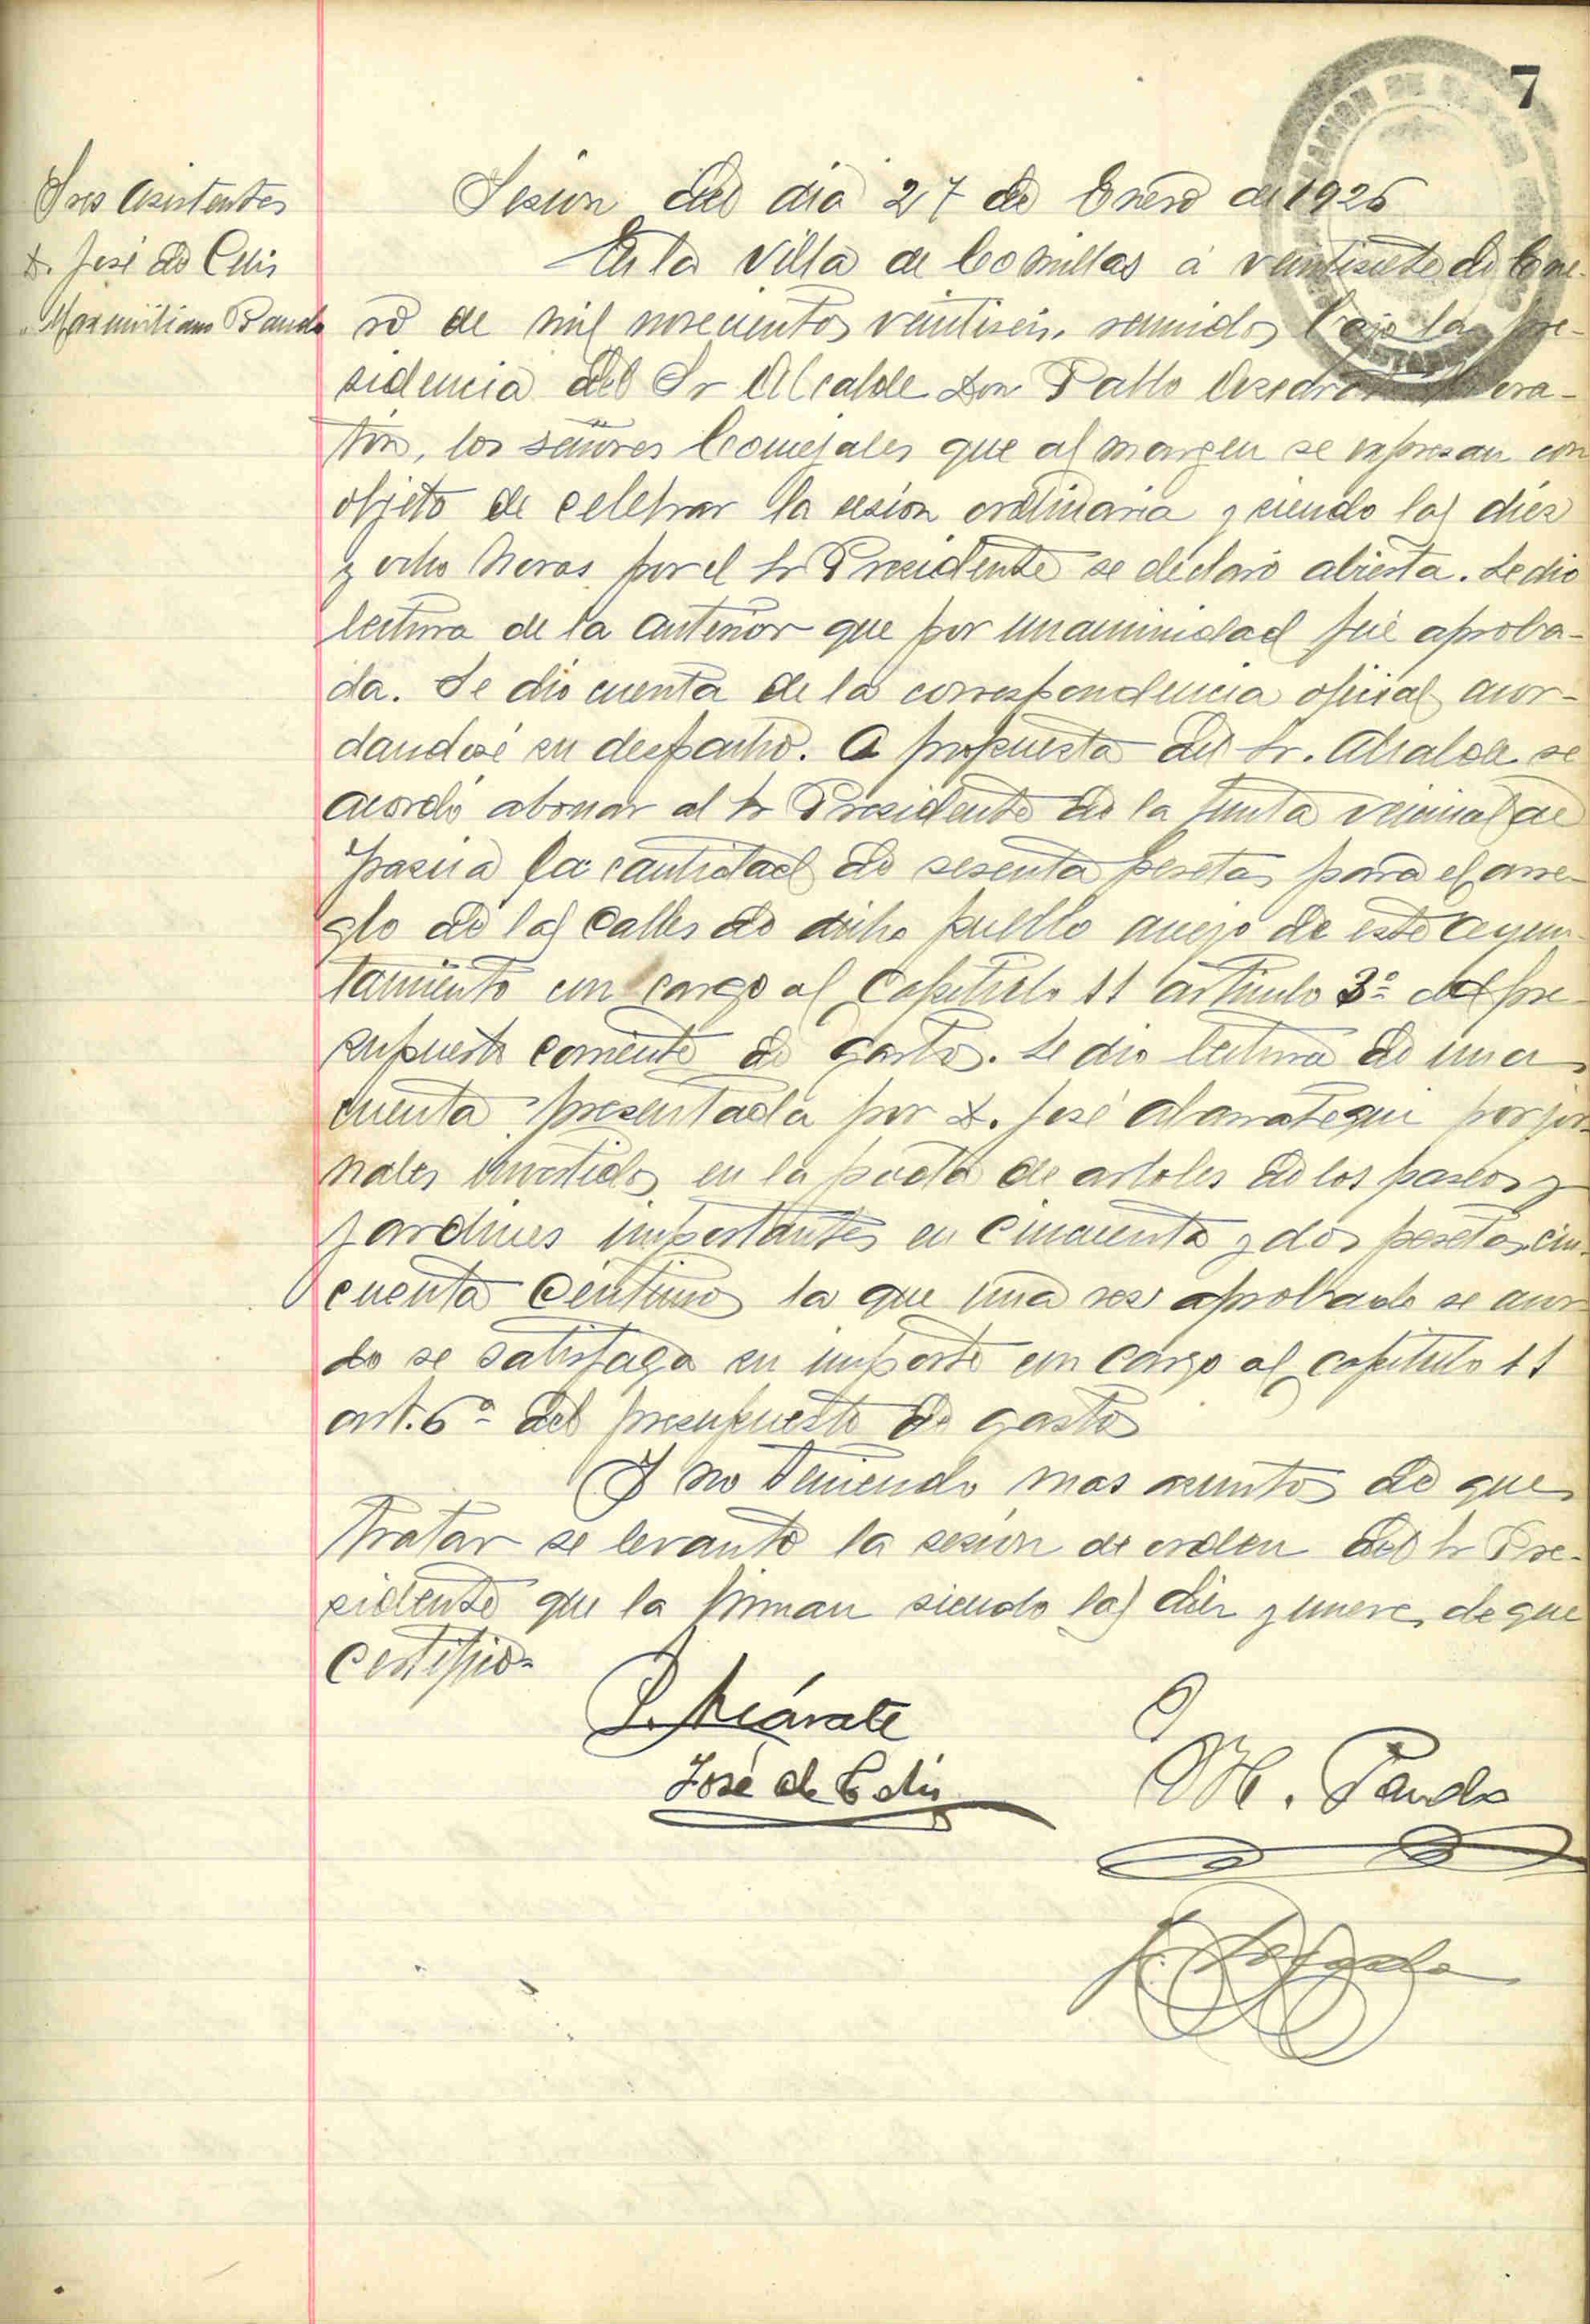 7
Sres Asistentes
D. José de Celis
" Maximiliano Pando
Sesión del dia 27 de Enero de 1926
En la Villa de Comillas á veintisiete de Ene-
ro de mil novecientos veintiseis, reunidos bajo la pre-
sidencia del Sr Alcalde Don Pablo
tín, los señores Concejales que al margen se expresan con
objeto de celebrar la sesión ordinaria y siendo las diez
y ocho horas por el Sr Presidente se declaró abierta. Se dio
lectura de la anterior que por unanimidad fué aproba-
da. Se dió cuenta de la correspondencia oficial acor-
dandosé su despacho. A propuesta del Sr. Alcalde se
acordó abonar al Sr Presidente de la Junta vecinal de
la cantidad de sesenta pesetas para el arre-
glo de las calles de dicho pueblo anejo de este Ayun-
tamiento con cargo al Capitulo 11 articulo 3º del pre-
supuesto corriente de gastos. Se dio lectura de una
cuenta presentada por D. José por jor-
nales invertidos en la poda de arboles de los paseos y
jardines importantes en cincuenta y dos pesetas cin-
cuenta centimos la que una vez aprobada se acor-
do se satisfaga su importe con cargo al capitulo 11
art. 6º del presupuesto de gastos
Y no teniendo mas asuntos de que
tratar se levanto la sesión de orden del Sr Pre-
sidente que la firman siendo las diez y nueve, de que
certifico=
José de Celis
M. Pando